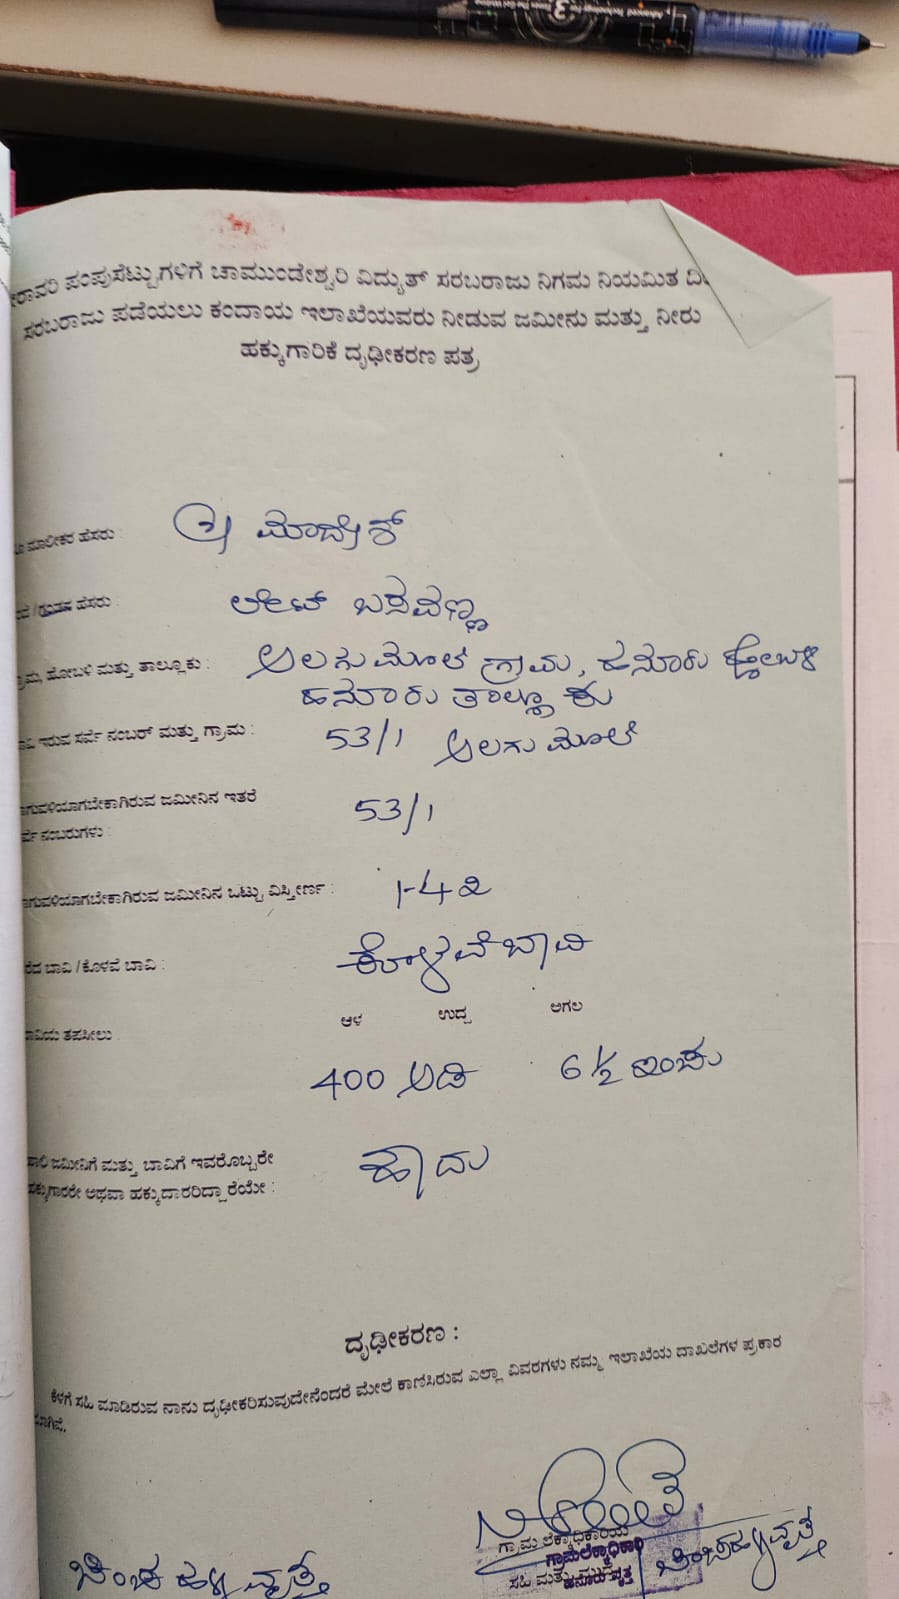 ಪಂಪುಸೆಟ್ಟುಗಳಿಗೆ ಚಾಮುಂಡೇಶ್ವರಿ ವಿದ್ಯುತ್ ಸರಬರಾಜು ನಿಗಮ ನಿಯಮಿತ
ಸರಬರಾಜು ಪಡೆಯಲು ಕಂದಾಯ ಇಲಾಖೆಯವರು ನೀಡುವ ಜಮೀನು ಮತ್ತು ನೀರು
ಹಕ್ಕುಗಾರಿಕೆ ದೃಢೀಕರಣ ಪತ್ರ
ಮಾಲೀಕರ ಹೆಸರು : ಶ್ರೀ ಮಾದೇಶ್
ಹೆಸರು : ಲೇಟ್ ಬಸವಣ್ಣ
ಹೋಬಳಿ ಮತ್ತು ತಾಲ್ಲೂಕು : ಅಲಗುಮೂಲೆ ಗ್ರಾಮ, ಹನೂರು ಹೋಬಳಿ
ಹನೂರು ತಾಲ್ಲೂಕು
ಇರುವ ಸರ್ವೆ ನಂಬರ್ ಮತ್ತು ಗ್ರಾಮ : 53/1 ಅಲಗುಮೂಲೆ
ಜಮೀನಿನ ಇತರೆ 53/1
ನಂಬರುಗಳು :
ಜಮೀನಿನ ಒಟ್ಟು ವಿಸ್ತೀರ್ಣ : 1-42
ಬಾವಿ / ಕೊಳವೆ ಬಾವಿ : ಕೊಳವೆ ಬಾವಿ
ಆಳ ಉದ್ದ ಅಗಲ
ತಪಸೀಲು
400 ಅಡಿ 6 ½ ಇಂಚು
ಜಮೀನಿಗೆ ಮತ್ತು ಬಾವಿಗೆ ಇವರೊಬ್ಬರೇ ಹೌದು
ಅಥವಾ ಹಕ್ಕುದಾರರಿದ್ದಾರೆಯೇ :
ದೃಢೀಕರಣ :
ಕೆಳಗೆ ಸಹಿ ಮಾಡಿರುವ ನಾನು ದೃಢೀಕರಿಸುವುದೇನೆಂದರೆ ಮೇಲೆ ಕಾಣಿಸಿರುವ ಎಲ್ಲಾ ವಿವರಗಳು ನಮ್ಮ ಇಲಾಖೆಯ ದಾಖಲೆಗಳ ಪ್ರಕಾರ
ಗ್ರಾಮ ಲೆಕ್ಕಾಧಿಕಾರಿಯ
ಗ್ರಾಮಲೆಕ್ಕಾಧಿಕಾರಿ
ಸಹಿ ಮತ್ತು